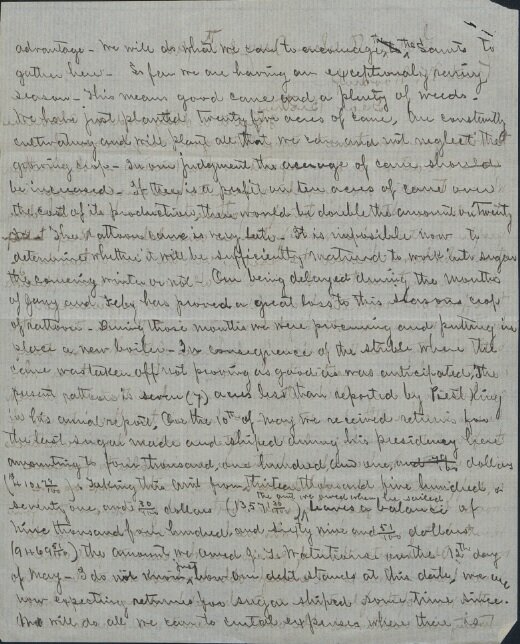 advantage - We will do what we can to encourage the Saints to
gather here - So far we are having an exceptionally rainy
season - This means good cane and a plenty of weeds -
We have just planted twenty five acres of cane, are constantly
cultivating and will plant all that we can and not neglect the
growing crop - In our judgment the acreage of cane should
be increased - If there is a profit on ten acres of cane over
the cost of its production, there would be double the amount on twenty
The rattoon cane is very late - It is impossible now to
determine whether it will be sufficiently matured to work into sugar
the comeing winter or not - Our being delayed during the months
of Jany and Feby has proved a great loss to this seasons crop
of rattoons - During those months we were procuring and putting in
place a new boiler - In consequence of the stubble where the
cane was taken off not proving as good as was anticipated, the
present rattoons is seven (7) acres less than reported by Prest King
in his annual report, On the 10th of May we received returns for
the last sugar made and shiped during his presidency here
amounting to four thousand one hundred and one, and dollars
Taking this amt from thirteen thousand five hundred &
seventy one, and 20/100 dollars the amt we owed when he sailed leaves a balance of
Nine thousand four hundred and sixty nine and 51/100 dollars
the amount we owed J. T. Waterhouse on the 12th day
of May - I do not know just how our debt stands at this date, we are
now expecting returns for sugar shiped some time since.
We will do all we can to curtail expenses where there is